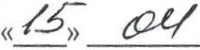 «15» 04